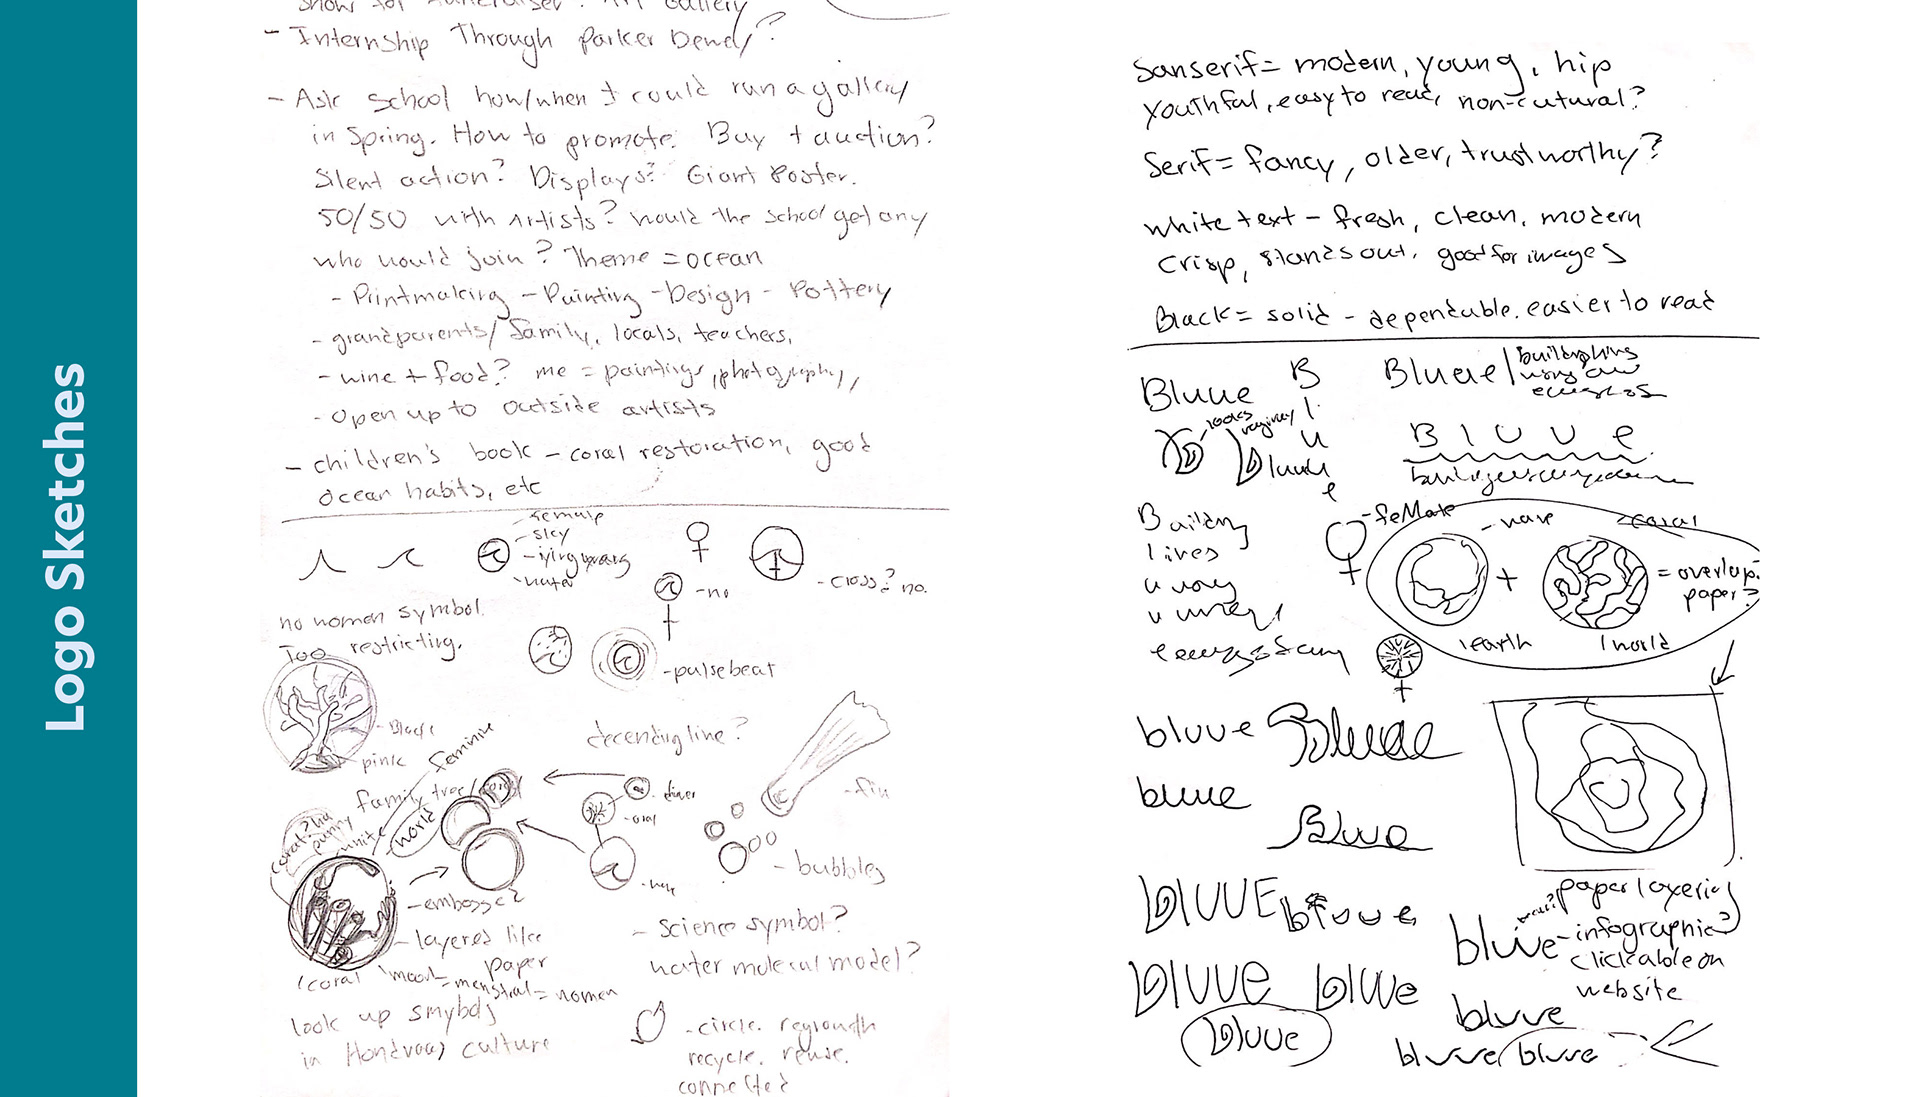 Logo Sketches
show for fundraiser? Art Gallery
- Internship Through Parker Dewey?
- Ask school how/when I could run a gallery
in Spring. How to promote. Buy + auction?
Silent action? Displays? Giant Poster.
50/50 with artists? would the school get any
who would join? Theme = ocean
- Printmaking - Painting - Design - Pottery
- grandparents/family, locals, teachers,
- wine + food? me = paintings, photography,
- open up to outside artists
- children's book - coral restoration, good
ocean habits, etc
female
- sky
water
- no
- cross? no.
no women symbol.
Too restricting.
- pulsebeat
- Black
pink
decending line?
feminine
family tree/
world
unite
- fin
- bubbles
- embossed?
- layered like
paper
coral
mood = menstral = women
look up smybols
in Honduras culture
- Science symbol?
water molecul model?
- circle. regrowth
recycle. reuse.
connected
Sanserif = modern, young, hip
youthful, easy to read, non-cutural?
Serif = fancy, older, trustworthy?
white text - fresh, clean, modern
crisp, stands out, good for images
Black = solid - dependable. easier to read
Bluue
B l u u e
Bluue
looks
Bluue
B l u u e
Building
lives
- female
- wave
coral
+
= overlap?
paper?
earth
world
bluue
Bluue
bluue
Bluue
bluuE
bluue
bluue
bluue
bluue
bluue
- paper layering
- infographic?
clickable on
website
bluue
bluue
bluue/bluue